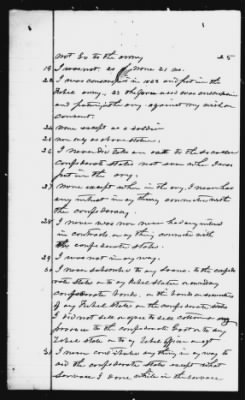 not go to the army 25
18 I was not. 20 None 21 no.
22 I was conscripted in 1862 and put in the
Rebel army. 23 the form was conscription
and put in the army against my wish or
consent.
24 none except as a soldier
25 none only as above stated
26 I never did take an oath to the so called
confederate states not even when I was
put in the army.
27 None except when in the army. I never had
any interest in any thing connected with
the confederacy
28 I never was nor never had any interest
in contracts or any thing connected with
the confederate states.
29 I was not in any way.
30 I never subscribed to any loans to the confede
rate states or to any Rebel states
confederate bonds. or the bonds or securities
of any Rebel State or the confederate states
I did not sell or agree to sell cotton or any
produce to the confederate Govt or to any
Rebel state or to any Rebel officer or agt
31 I never contributed any thing in any way to
aid the confederate states except what
service I done while in the service